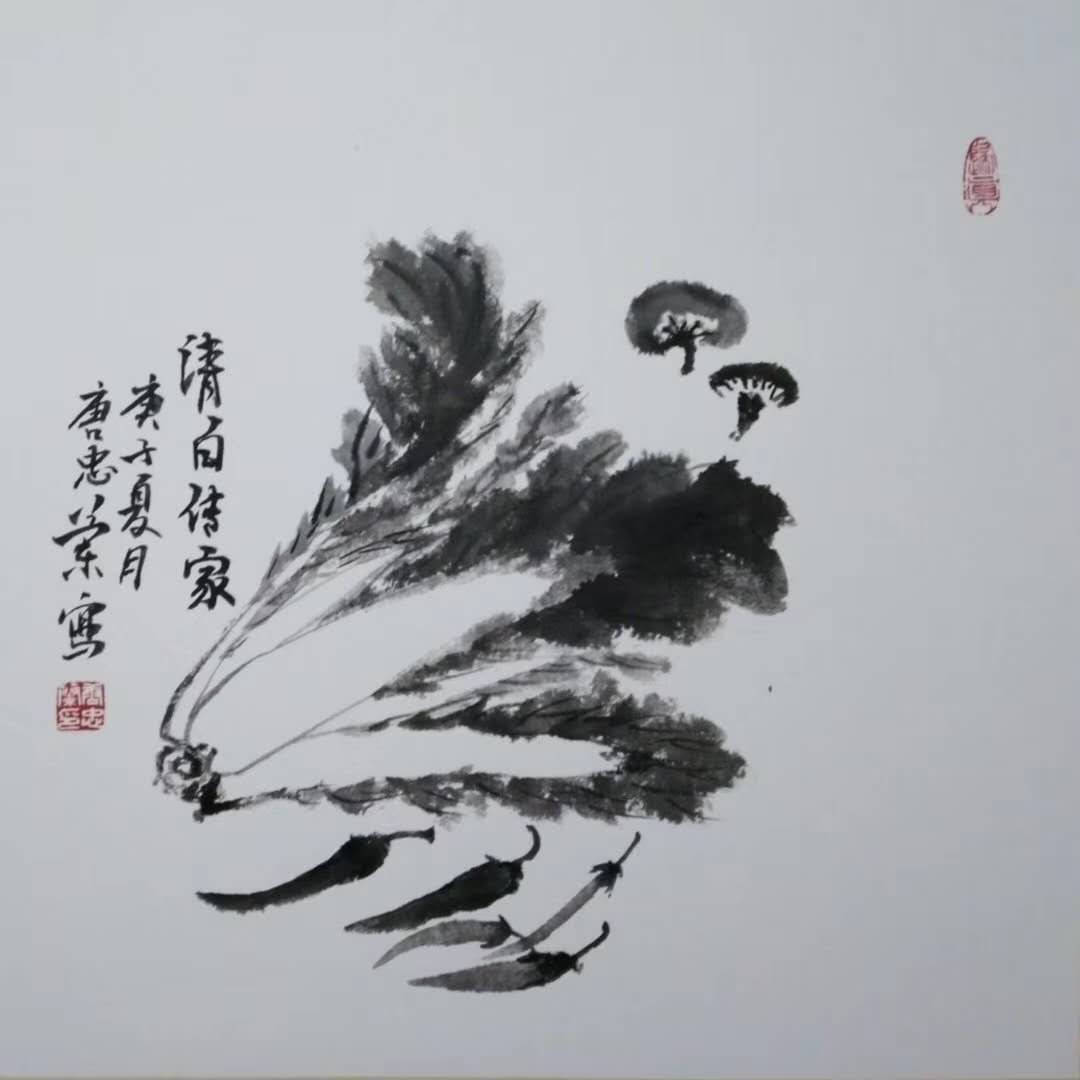 清白传家
庚子夏月
唐忠荣写